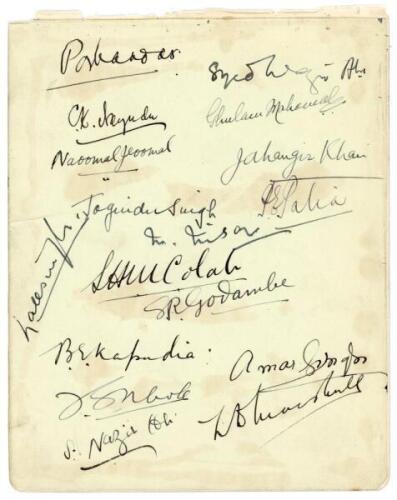 Porbandar.
Syed Wazir Ali
C.K. Nayudu
Ghulam Mohamad
Naoomal Jeoomal
Jahangir Khan
Joginder Singh
P.E. Palia
Lall Singh
M. Nissar
S.H.M. Colah
S.R. Godambe
B.E. Kapadia.
Amar Singh
N.D. Marshall
S. Nazir Ali